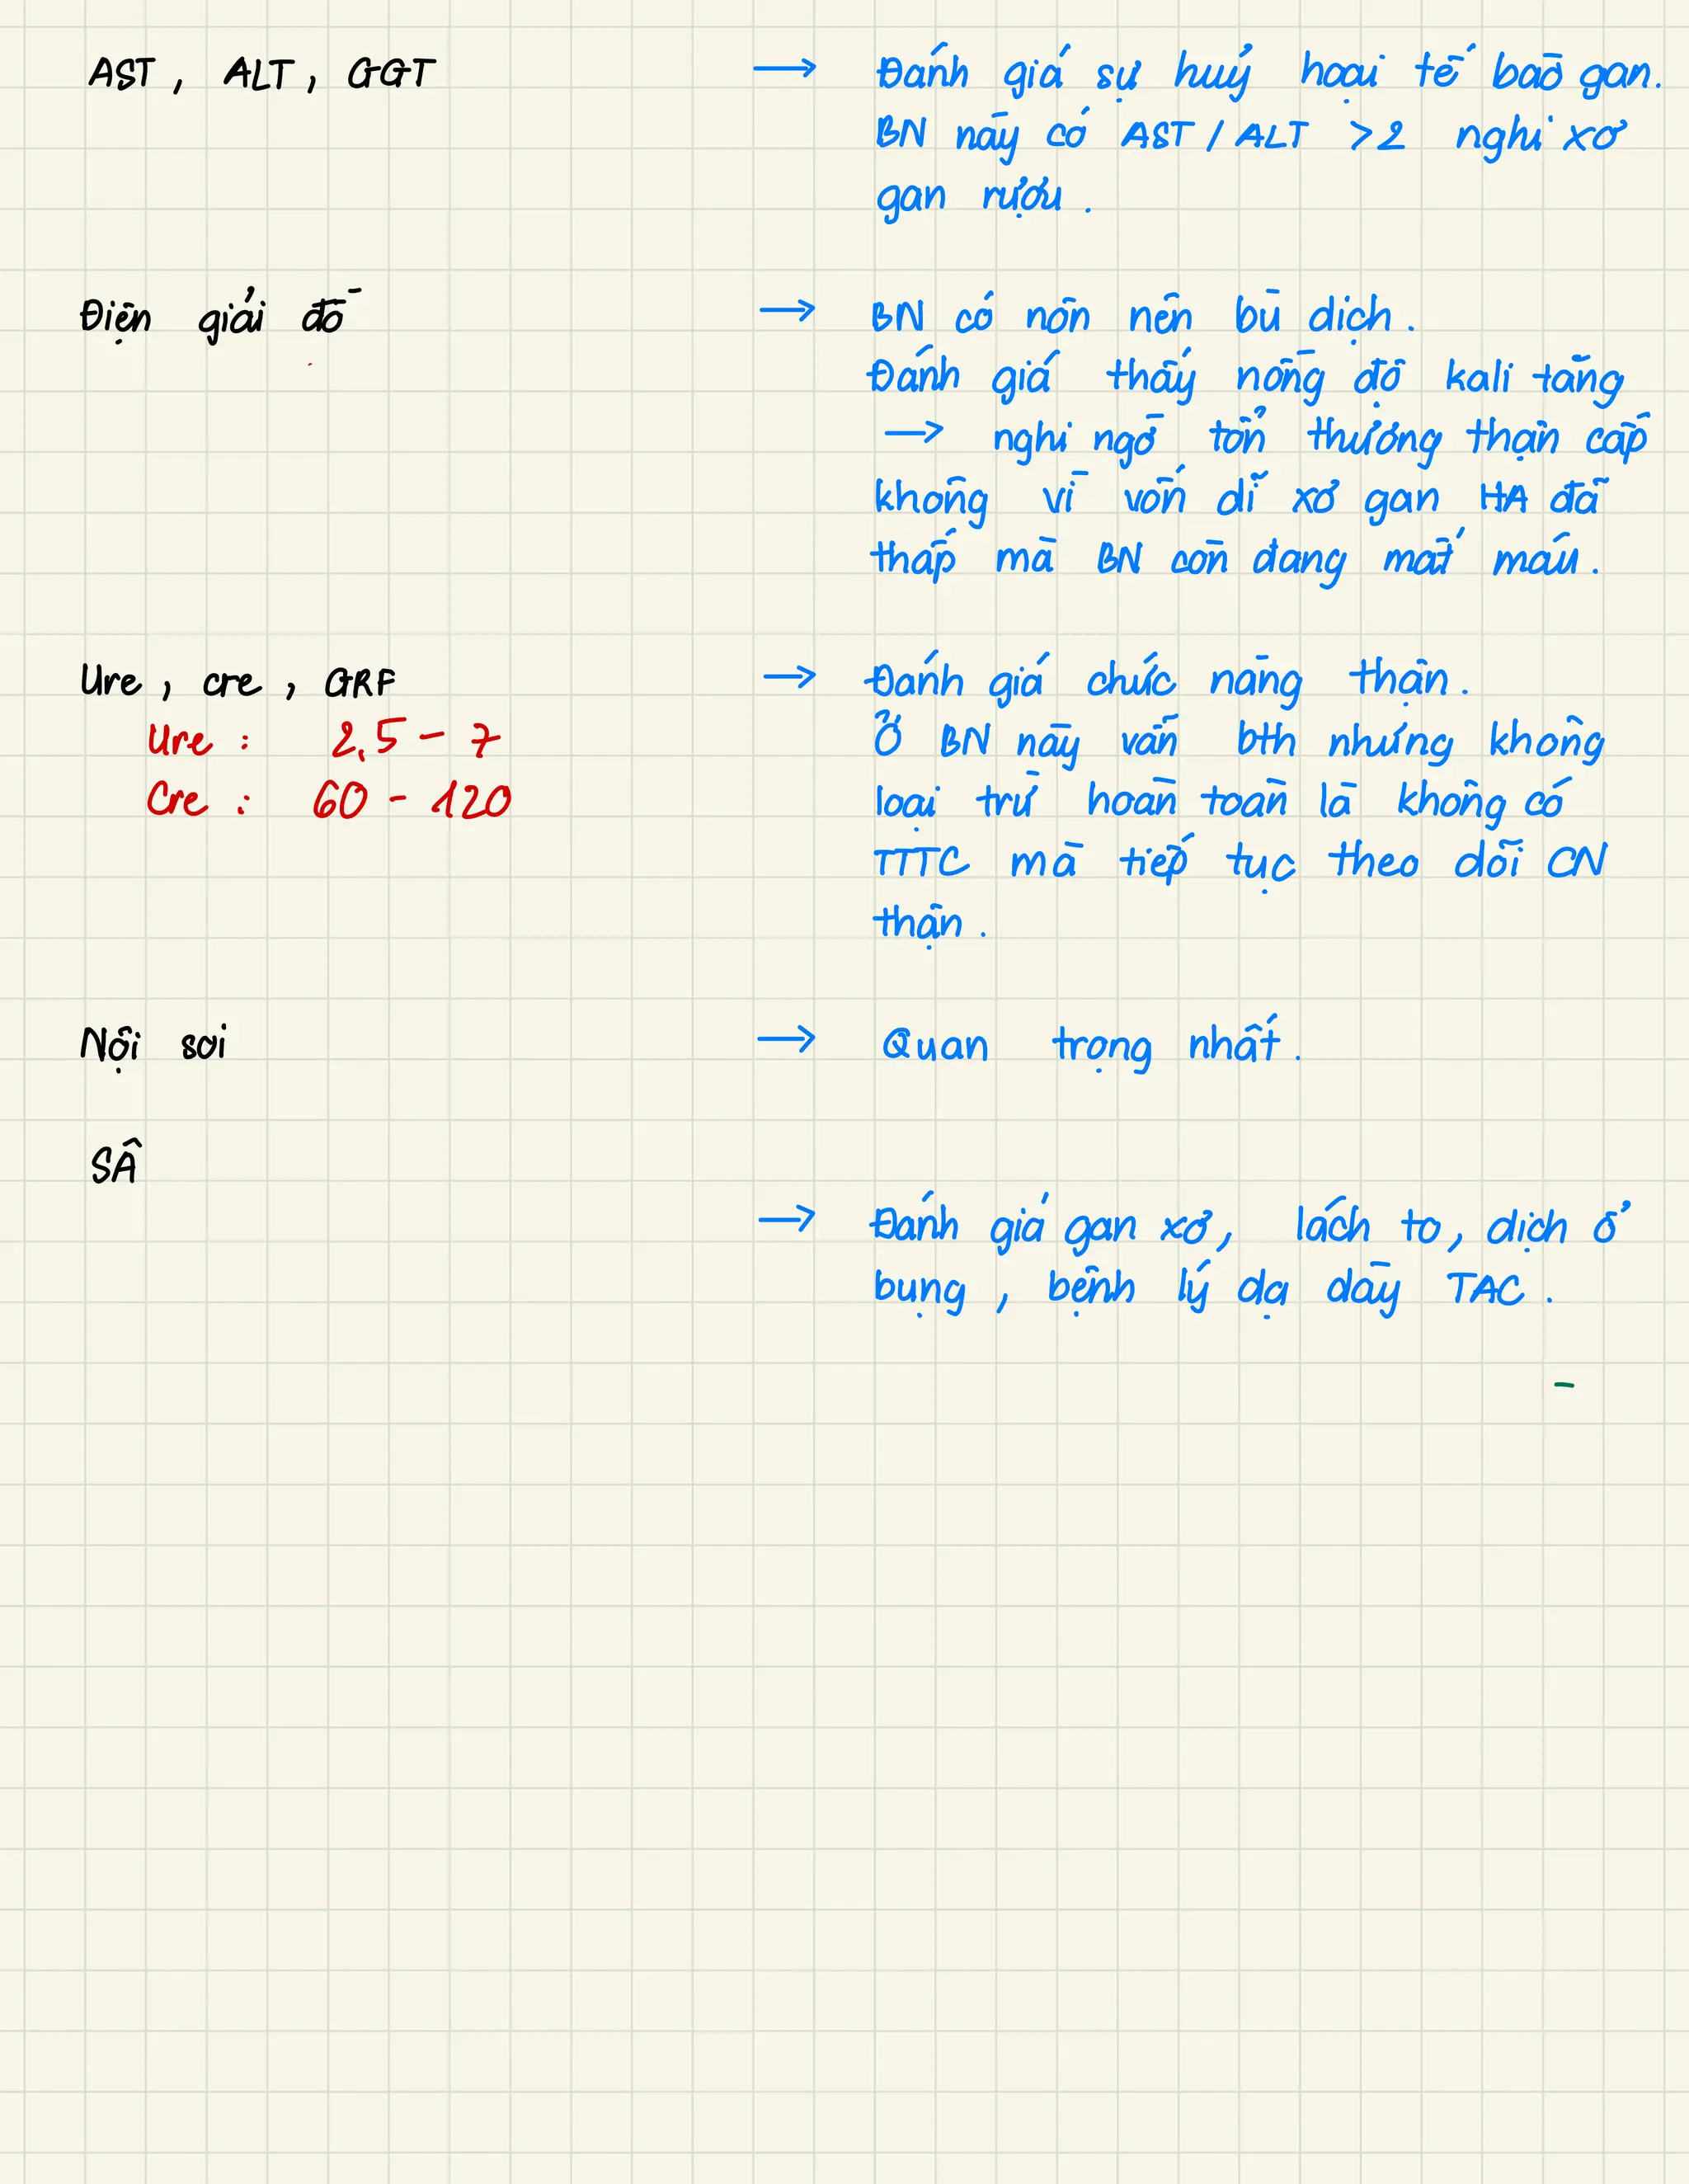 AST, ALT, GGT → Đánh giá sự huỷ hoại tế bào gan.
BN này có AST/ALT >2 nghi xơ
gan rượu.
Điện giải đồ → BN có nôn nên bù dịch.
Đánh giá thấy nồng độ kali tăng
→ nghi ngờ tổn thương thận cấp
không vì vốn dĩ xơ gan HA đã
thấp mà BN còn đang mất máu.
Ure, cre, GRF → Đánh giá chức năng thận.
Ure : 2,5 - 7
Ở BN này vẫn bth nhưng không
Cre : 60 - 120
loại trừ hoàn toàn là không có
TTTC mà tiếp tục theo dõi CN
thận.
Nội soi → Quan trọng nhất.
SÂ
→ Đánh giá gan xơ, lách to, dịch ổ
bụng, bệnh lý dạ dày TAC.